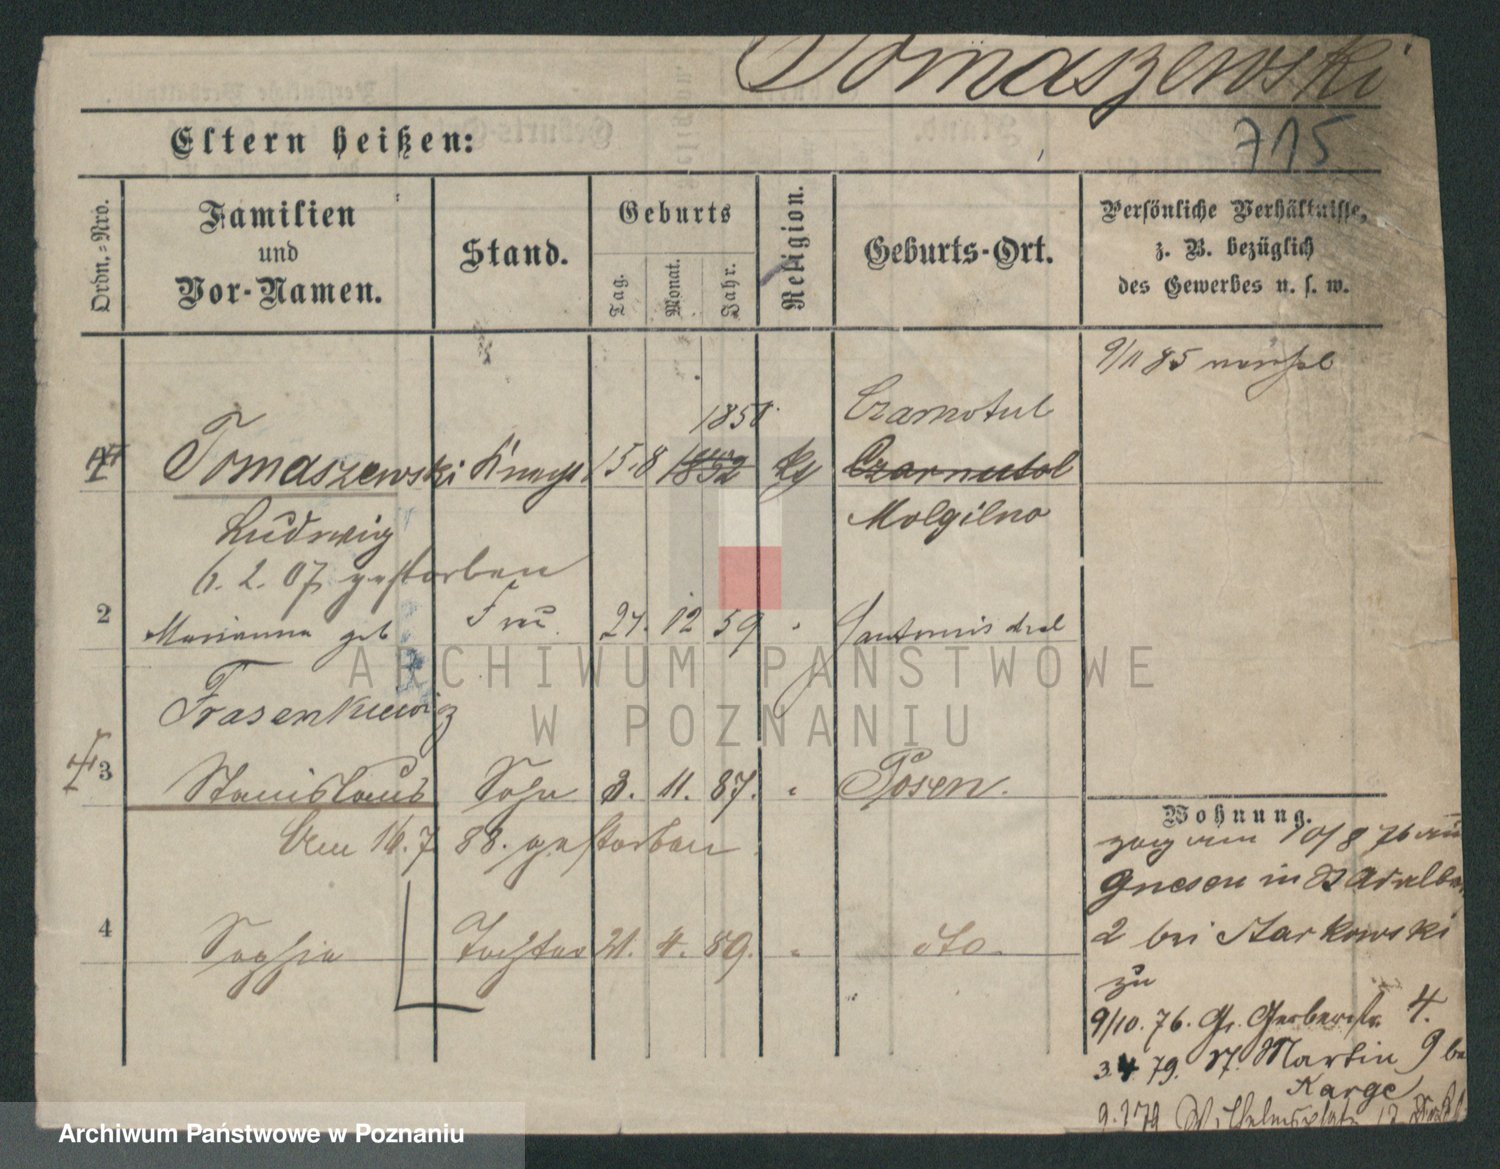 Tomaszewski
715
Eltern heißen:
Ordn.-Nro.
Familien
und
Vor-Namen.
Stand.
Geburts
Tag.
Monat.
Jahr.
Religion.
Geburts-Ort.
Persönliche Verhältnisse,
z. B. bezüglich
des Gewerbes u. s. w.
9/11 85
1850 Czarnotul
Tomaszewski Knecht 15. 8 1852 kg Czarnutol
Ludwig Molgilno
6. 2. 07 gestorben
2 Marianna geb Frau 27. 12 59 "
Frasenkiewicz
3 Stanislaus Sohn 3. 11. 87. " Posen.
Am 16. 7 88. gestorben
4 Sophia Tochter 21. 4. 89. " dto.
Wohnung.
zog am 10/8 76 aus
Gnesen in St Adalb.
2 bei Starkowski
zu
9/10. 76. Gr. Gerberstr. 4.
3.4. 79. St. Martin 9 bei
Karge
9. 7 79 Wilhelmsplatz 12
ARCHIWUM PAŃSTWOWE
W POZNANIU
Archiwum Państwowe w Poznaniu